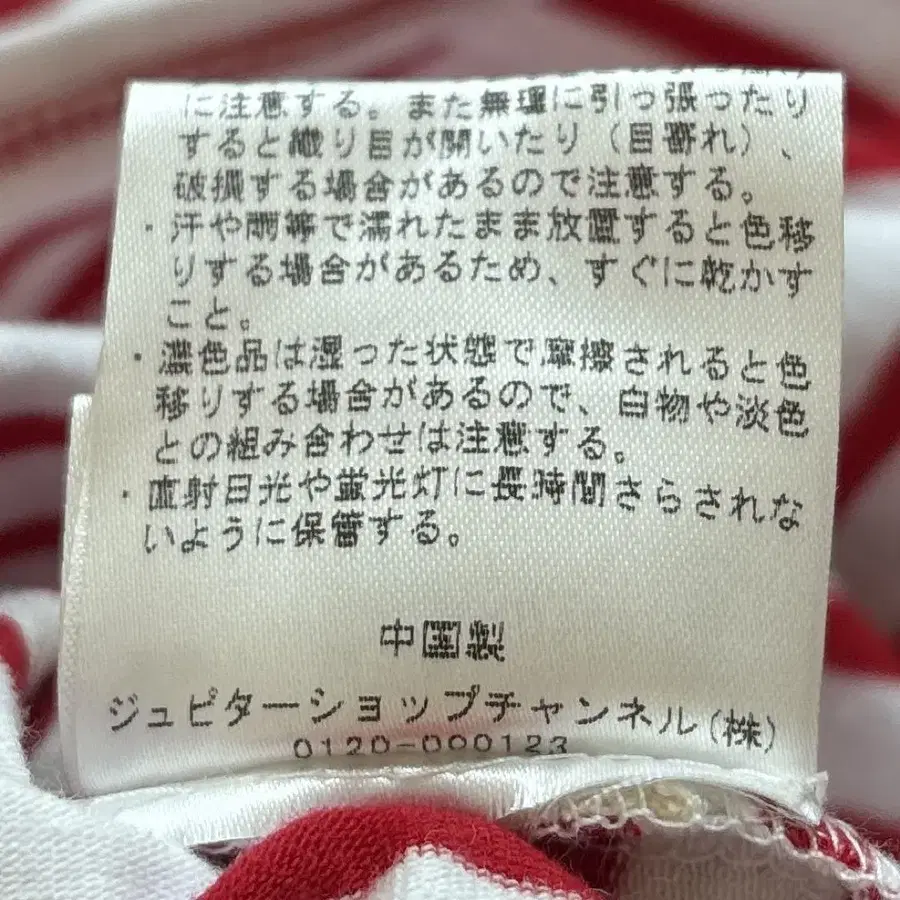 に注意する。また無理に引っ張ったり
すると織り目が開いたり（目寄れ）、
破損する場合があるので注意する。
・汗や雨等で濡れたまま放置すると色移
りする場合があるため、すぐに乾かす
こと。
・濃色品は湿った状態で摩擦されると色
移りする場合があるので、白物や淡色
との組み合わせは注意する。
・直射日光や蛍光灯に長時間さらされな
いように保管する。
中国製
ジュピターショップチャンネル(株)
0120-000123